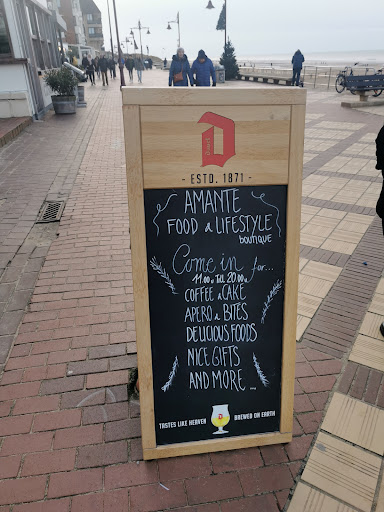 D
- ESTD. 1871 -
AMANTE
FOOD & LIFESTYLE
boutique
Come in for...
11.00 TILL 20.00
COFFEE & CAKE
APERO & BITES
DELICIOUS FOODS
NICE GIFTS
AND MORE...
TASTES LIKE HEAVEN BREWED ON EARTH